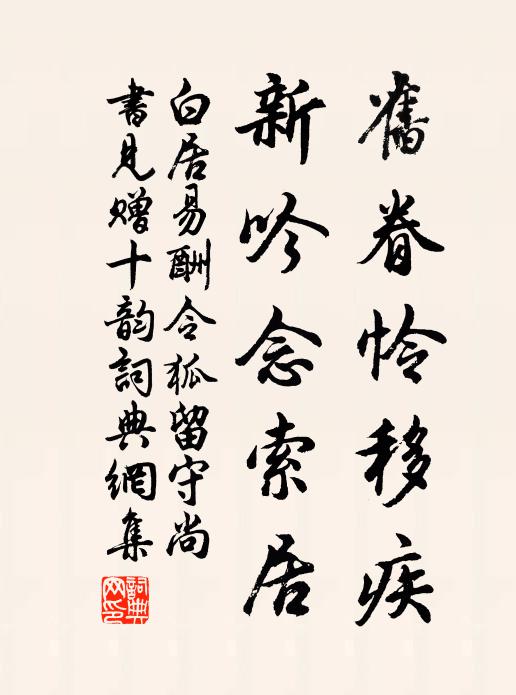 舊眷怜移疾
新吟念索居
白居易酬令狐留守尚
書見贈十韵詞典網集